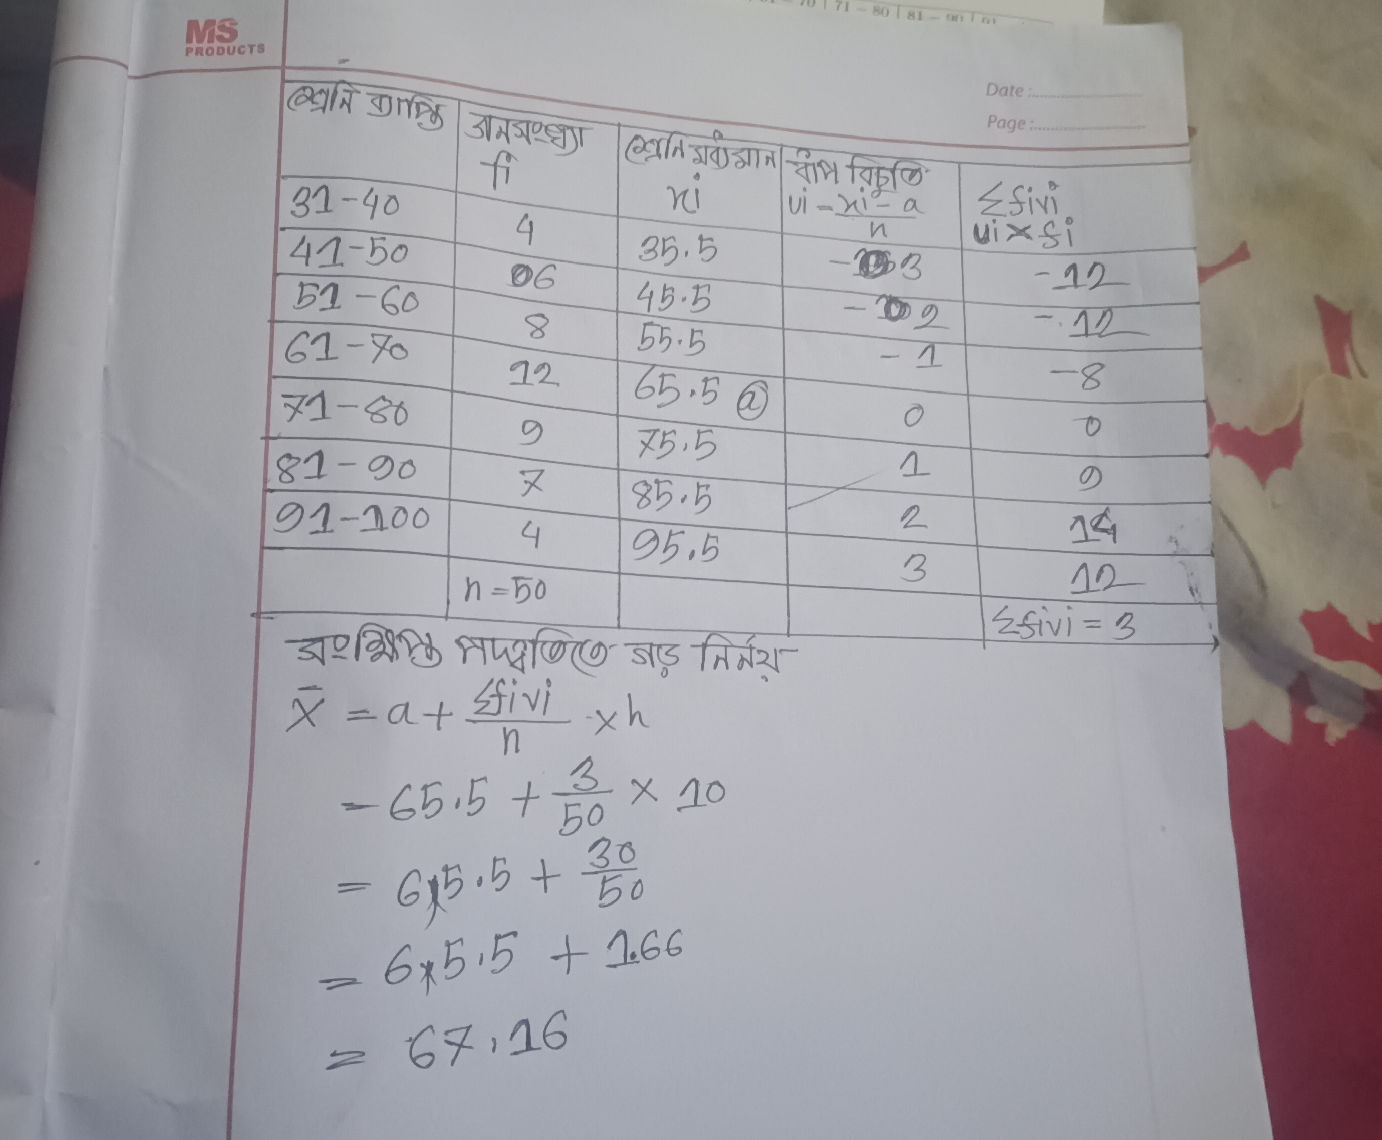 71 - 80 | 81 - 90
MS
PRODUCTS
Date :
Page :
শ্রেনি ব্যাপ্তি | জনসংখ্যা fi | শ্রেনি মধ্যমান xi | ধাপ বিচ্যুতি ui = xi - a / h | Σfiui ui×fi
31-40 | 4 | 35.5 | -3 | -12
41-50 | 06 | 45.5 | -2 | -12
51-60 | 8 | 55.5 | -1 | -8
61-70 | 12 | 65.5 ⓐ | 0 | 0
71-80 | 9 | 75.5 | 1 | 9
81-90 | 7 | 85.5 | 2 | 14
91-100 | 4 | 95.5 | 3 | 12
n=50 | Σfiui = 3
সংক্ষিপ্ত পদ্ধতিতে গড় নির্নয়
x̄ = a + Σfiui / n × h
= 65.5 + 3/50 × 10
= 65.5 + 30/50
= 65.5 + 1.66
= 67.16